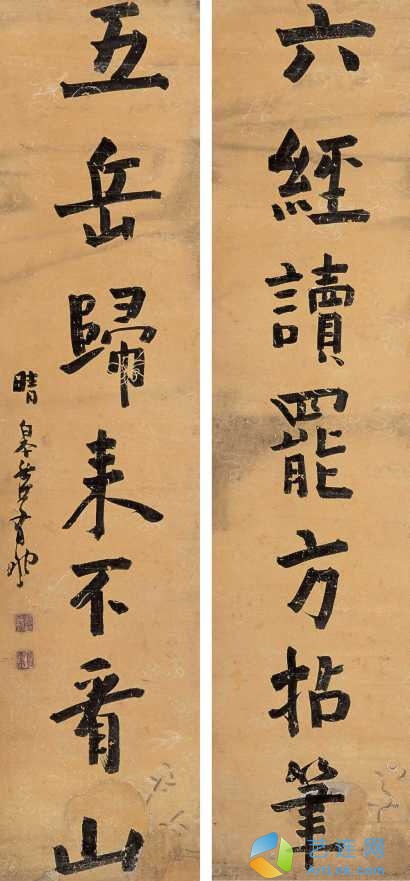 六經讀罷方拈筆
五岳歸来不看山
晴皋有融